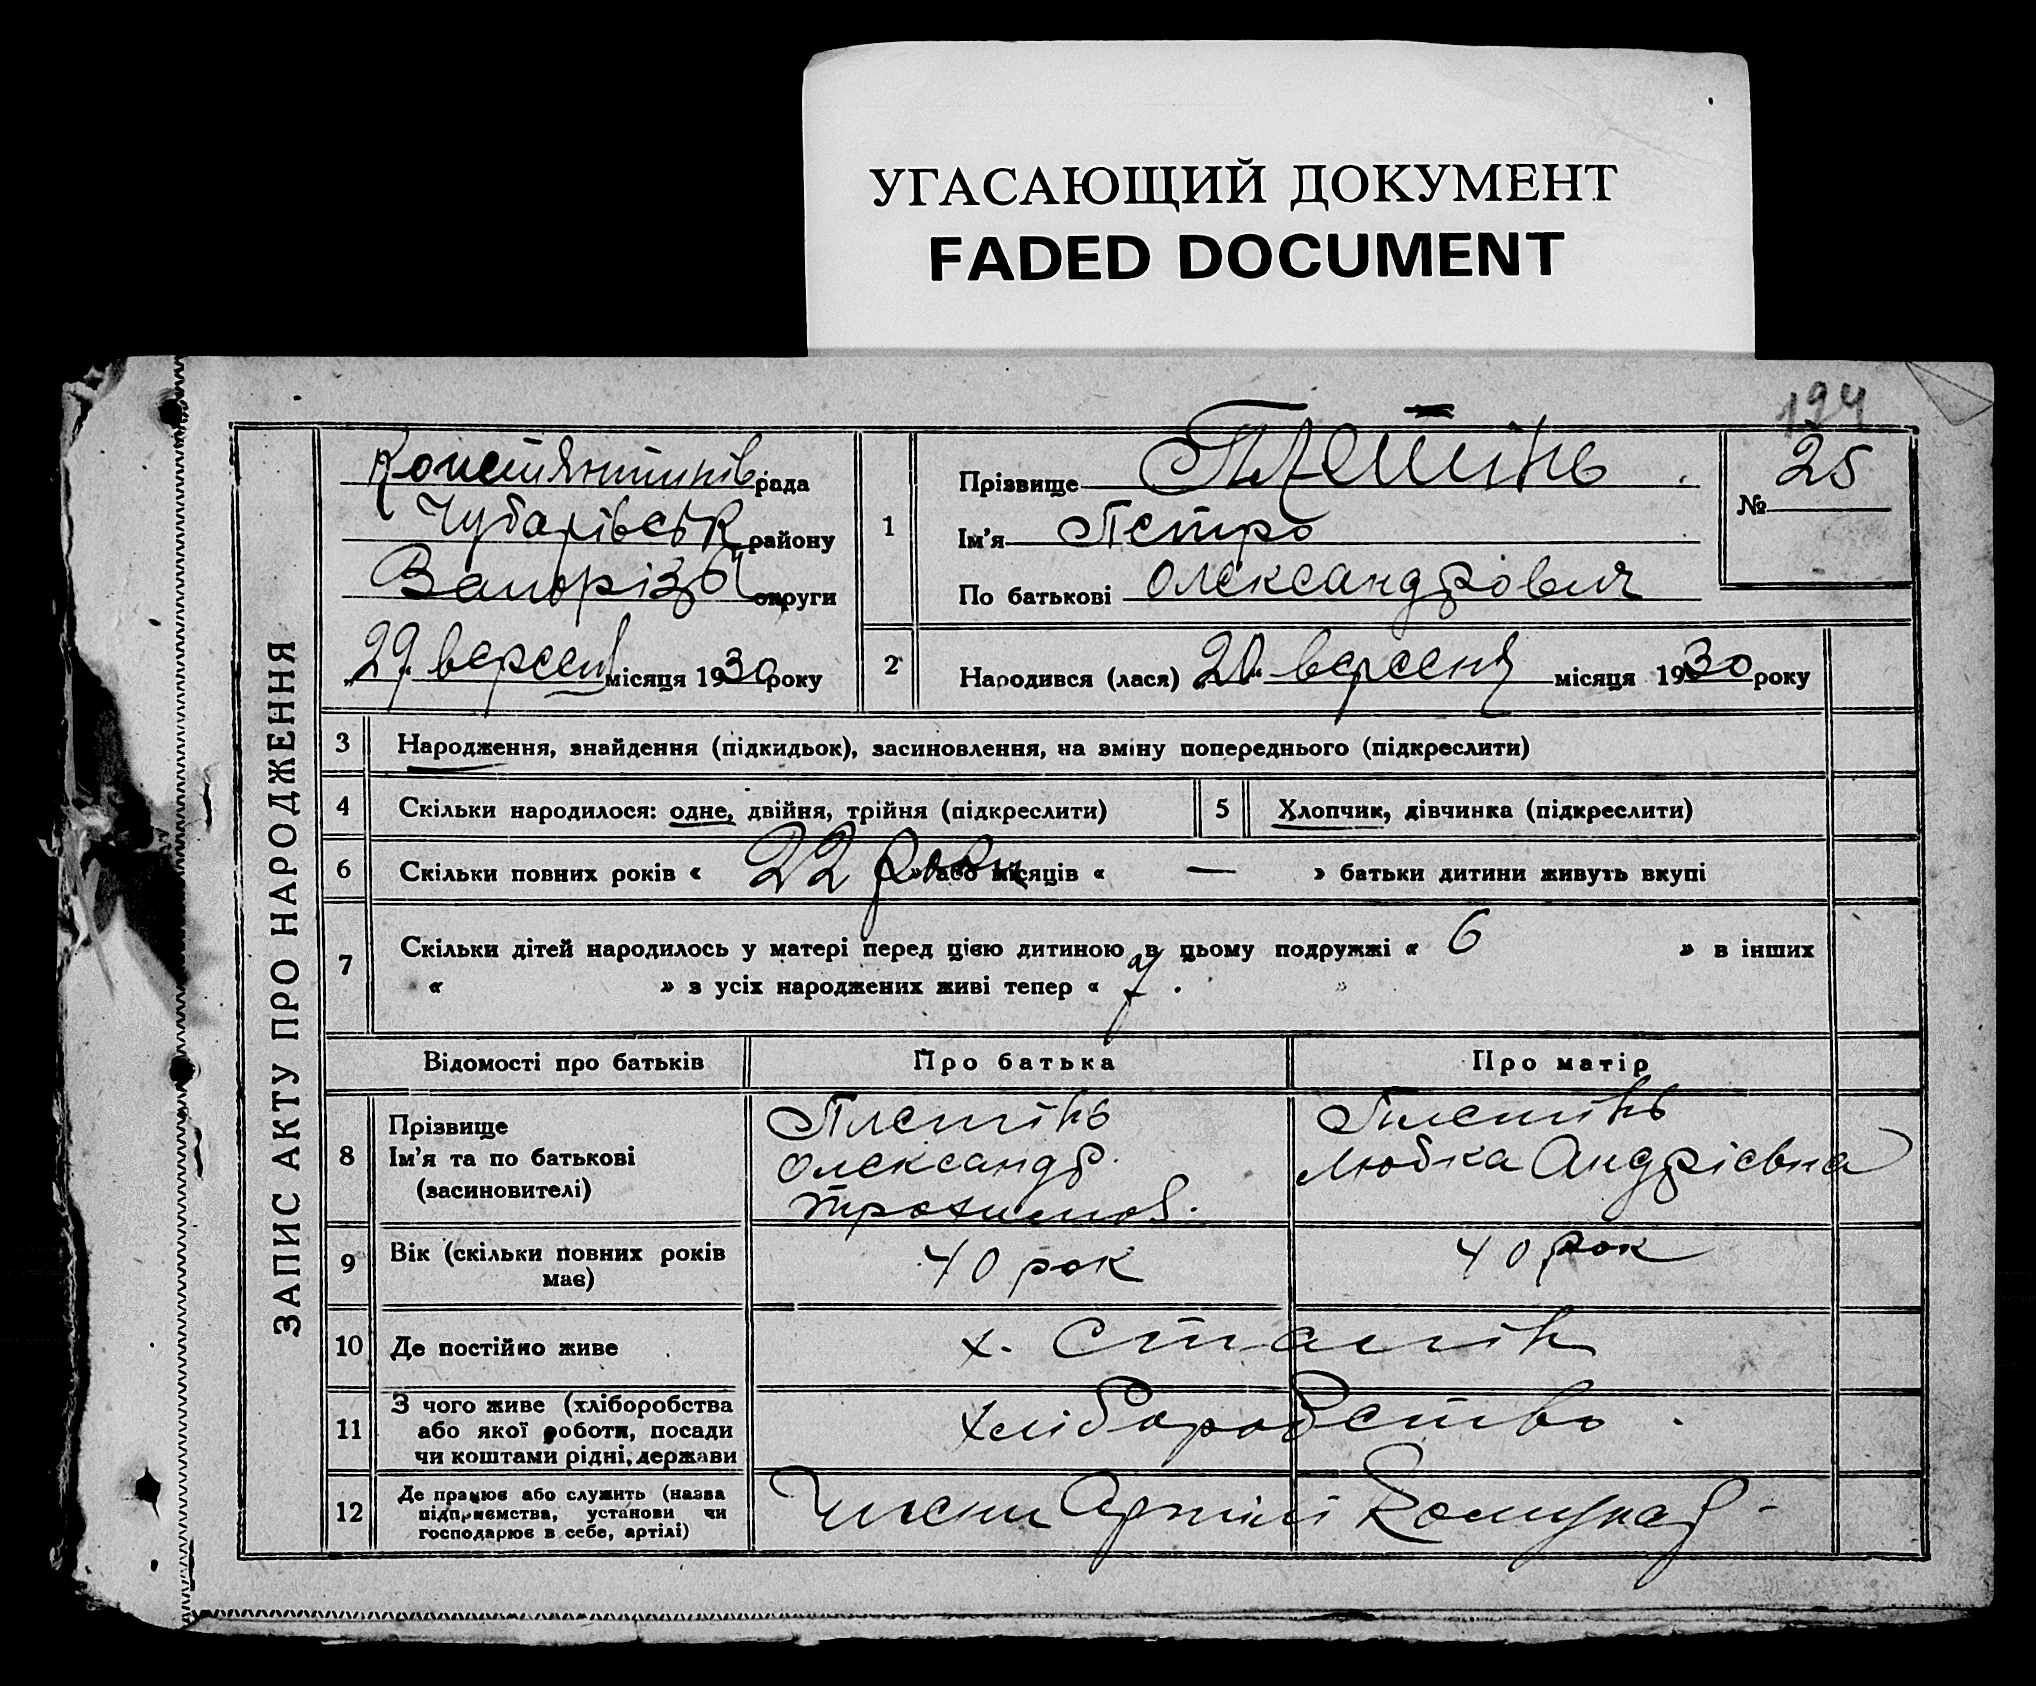 УГАСАЮЩИЙ ДОКУМЕНТ
FADED DOCUMENT
194
ЗАПИС АКТУ ПРО НАРОДЖЕННЯ
Констянтинів рада
Чубарівськ району
Запорізьк округи
„29" вересня місяця 1930 року
1
Прізвище Плетінь
Ім'я Петро
По батькові Олександрович
№ 25
2
Народився (лася) „20" вересня місяця 1930 року
3 Народження, знайдення (підкидьок), засиновлення, на зміну попереднього (підкреслити)
4 Скільки народилося: одне, двійня, трійня (підкреслити)
5 Хлопчик, дівчинка (підкреслити)
6 Скільки повних років « 22 роки » або місяців « — » батьки дитини живуть вкупі
7 Скільки дітей народилось у матері перед цією дитиною в цьому подружжі « 6 » в інших
« » з усіх народжених живі тепер « 7 . »
Відомості про батьків Про батька Про матір
8 Прізвище
Ім'я та по батькові
(засиновителі)
Плетінь
Олександр.
Плетінь
Любка Андрієвна
9 Вік (скільки повних років
має)
40 рок
40 рок
10 Де постійно живе
х.
11 З чого живе (хліборобства
або якої роботи, посади
чи коштами рідні, держави
хліборобство
12 Де працює або служить (назва
підприємства, установи чи
господарює в себе, артілі)
Члени Артілі